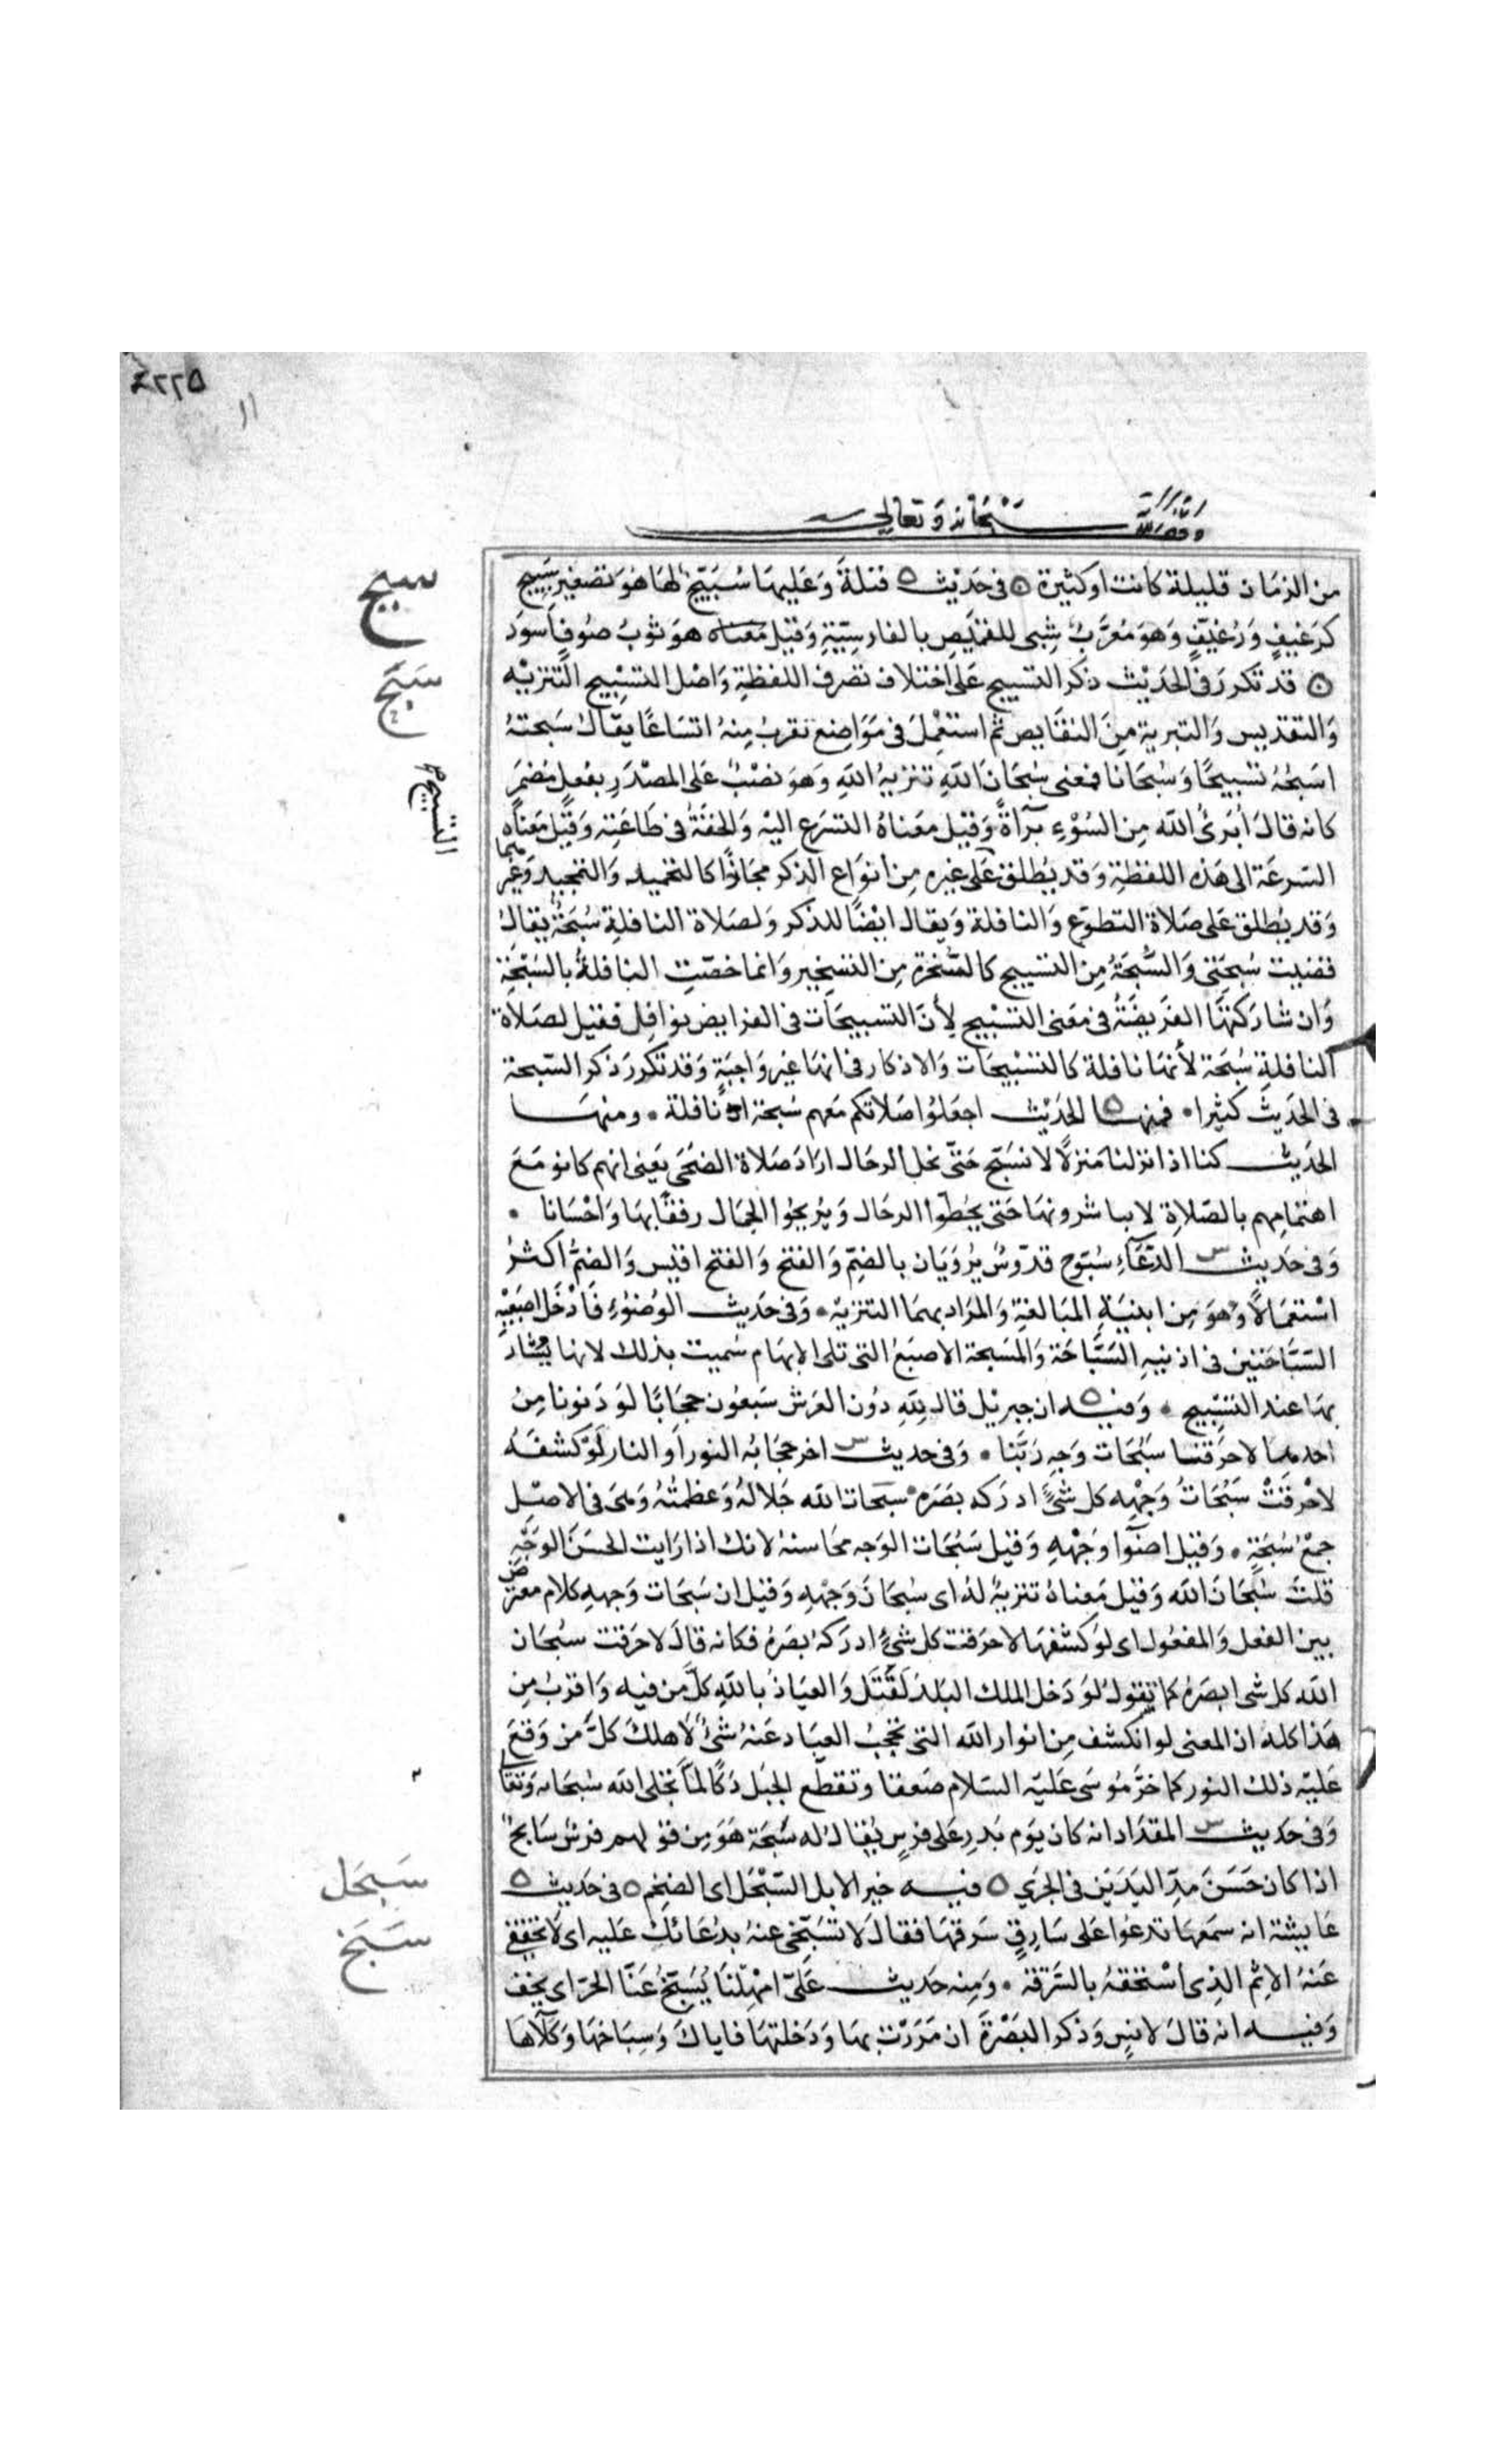 ٢٢٥
١١
وقف لله سبحانه وتعالى
من الزمان قليلة كانت او كثيرة ٥ في حديث ٥ قيلة وَعَليها سُبَيّج لها هُوَ تصغير سَبيج
سبج
كرَغيفٍ وَرُغيّفٍ وَهوَ مُعَرَّبُ شبى للقميصِ بالفارسِيّةِ وَقيل معناه هوَ ثوبُ صُوفٍ اسوَد
٥ قد تكررَ في الحَدَيْث ذكر التسبيح عَلى اختلاف تصرف اللفظةِ وَاصْل التسْبِيح التّنزيْه
سَبَّحَ
وَالتقديس وَالتبرية مِنَ النقايص ثم استعْمِلَ في مَوَاضِع تقربُ مِنهُ اتسَاعًا يقالُ سَبحتهُ
اسَبحُهُ تسبيحًا وَسُبحَانا فمعنى سُبْحَانَ اللّهِ تنزيهُ اللّهِ وَهوَ نصْبٌ عَلى المصْدَرِ بفعلٍ مُضمَرٍ
التسبيح
كانه قالَ اُبَرئُ اللّه مِن السُوْءِ بَرآةً وَقيل معَناهُ التسَرع اليْهِ وَالخفَّةُ في طَاعَتِهِ وَقيْل مَعناه
السّرعَة الى هَذهِ اللفظةِ وَقد يُطلق عَلى غيرهِ مِن انوَاع الذكر مجازًا كالتحميد وَالتمجيد وَغيرهما
وَقد يُطلق عَلى صَلاة التطوّع وَالنافلة وَيقال ايْضًا للذكر وَلصَلاة النافلةِ سُبحَةٌ يقالُ
قضيت سُبحَتى وَالسُّبحَةُ مِن التسبيح كالسُّخرة مِن التسْخِير وَانما خصّتِ النافلةُ بالسُبْحَةِ
وَان شارَكتهَا الفَريضَةُ في مَعنى التسْبيح لِأنّ التسبيحَات في الفرايض نوَافِل فقيل لصَلاة
النافلةِ سُبحَة لأنهَا نافلة كالتسْبيْحَات وَالاذكار في انهَا غير وَاجبَةٍ وَقد تكررَ ذكر السّبحة
في الحَديثَ كثيرا • فمنها ٥ الحَدَيْث اجعَلوُا صَلاتكم مَعهم سُبحة اى نافلة • ومنهَا
الحَديث كنا اذا نزلنا مَنزلًا لا نسَبّح حَتّى نحل الرحَال ارَادَ صَلاة الضحَى يَعنى انهم كانو مَعَ
اهتمامِهم بالصّلاةِ لا يباشرونهَا حَتى يحُطّوا الرحَال وَيُريحُوا الجمَال رفقًا بهَا وَاحْسَانا •
وَفي حَديث س الدُّعَآءِ سُبّوح قدّوسٌ يُرْوَيَان بالضّمّ وَالفتح وَالفتح اقيَس وَالضمُّ اكثرُ
اسْتعمَالًا وَهوَ مِن ابنيَةِ المبَالغةِ وَالمرَاد بهمَا التنزيه • وَفي حَديث الوُضوُءِ فَادْخَلَ اصبَعَيْه
السّبّاحَتيْن في اذنيهِ السَّبَّاحَة وَالمسَبحة الاصبَعُ التى تلى الابهَام سُميت بذلك لانهَا يُشارُ
بهَا عند التسْبِيْح • وَفيه ٥ ان جبريْل قالَ لِلّهِ دُون العَرش سَبعُون حِجَابًا لوَ دَنونا مِنْ
احدها لاحرَقتنا سُبُحَات وَجهِ رَبّنا • وَفي حديث س اخر حجَابُه النورُ او النار لَوْ كشفَهُ
لاحْرقَتْ سُبُحَاتُ وَجْهِه كل شئٍ ادرَكه بصَرَه • سبحات اللّه جَلالهُ وَعظمتُهُ وَهىَ في الاصْل
جمْعُ سُبْحَةٍ • وَقيل اضوَآ وَجْهِهِ وَقيل سُبُحَات الوَجه محَاسنهُ لانك اذا رَايت الحسَنَ الوَجْهِ
قلتَ سُبْحَانَ اللّه وَقيل مَعناهُ تنزيهٌ لهُ اى سُبْحَانَ وَجْههِ وَقيل ان سُبُحَات وَجههِ كلام معترض
بين الفعل وَالمفعُول اى لوَ كشفهَا لاحرَقت كل شئٍ ادرَكهُ بصَرهُ فكانه قالَ لاحرَقت سُبْحَان
اللّه كل شى ابصَرَهُ كما تقولُ لوْ دَخل الملك البَلدَ لَقَتَلَ وَالعيَاذُ باللّهِ كلّ من فيه وَاقربُ مِن
هَذا كله ان المعنى لو انكشف مِن انوار اللّه التى تحجبُ العبَاد عَنهُ شئٌ لاهلكَ كلَّ من وَقعَ
عَليْه ذلك النور كما خرّ مُوسَى عَليْه السّلام صَعقا وتقطّع الجبَل دَكًا لمّا تجلى اللّه سُبحَانه وَتعالى
وَفي حَديث س المقدَاد انه كان يَوم بَدرٍ على فرسٍ يُقال له سَبْحَة هَوَ مِن قوْلهم فرسٌ سَابحٌ
اذا كان حَسَنَ مَدِّ اليَدَيْن في الجرْي ٥ فيه خير الابل السّبَحْل اى الضخم ٥ في حَديث ٥
سَبَحَل
عَايشة انه سمَعهَا تدعُوا عَلى سَارقٍ سَرقهَا فقالَ لا تسَبّخى عنهُ بدُعَائكَ عَليه اى لا تخففى
سَبَخ
عَنهُ الاثمَ الذِى اسْتحقهُ بالسَّرقة • وَمِنه حَديث عَلىّ امْهلنَا يُسَبَّخْ عَنّا الحرّ اى يخف
وَفيه انه قالَ لانسٍ وَذكر البَصْرَةَ ان مَرَرْت بهَا وَدَخلتهَا فاياكَ وَسِبَاخهَا وَكلَآهَا